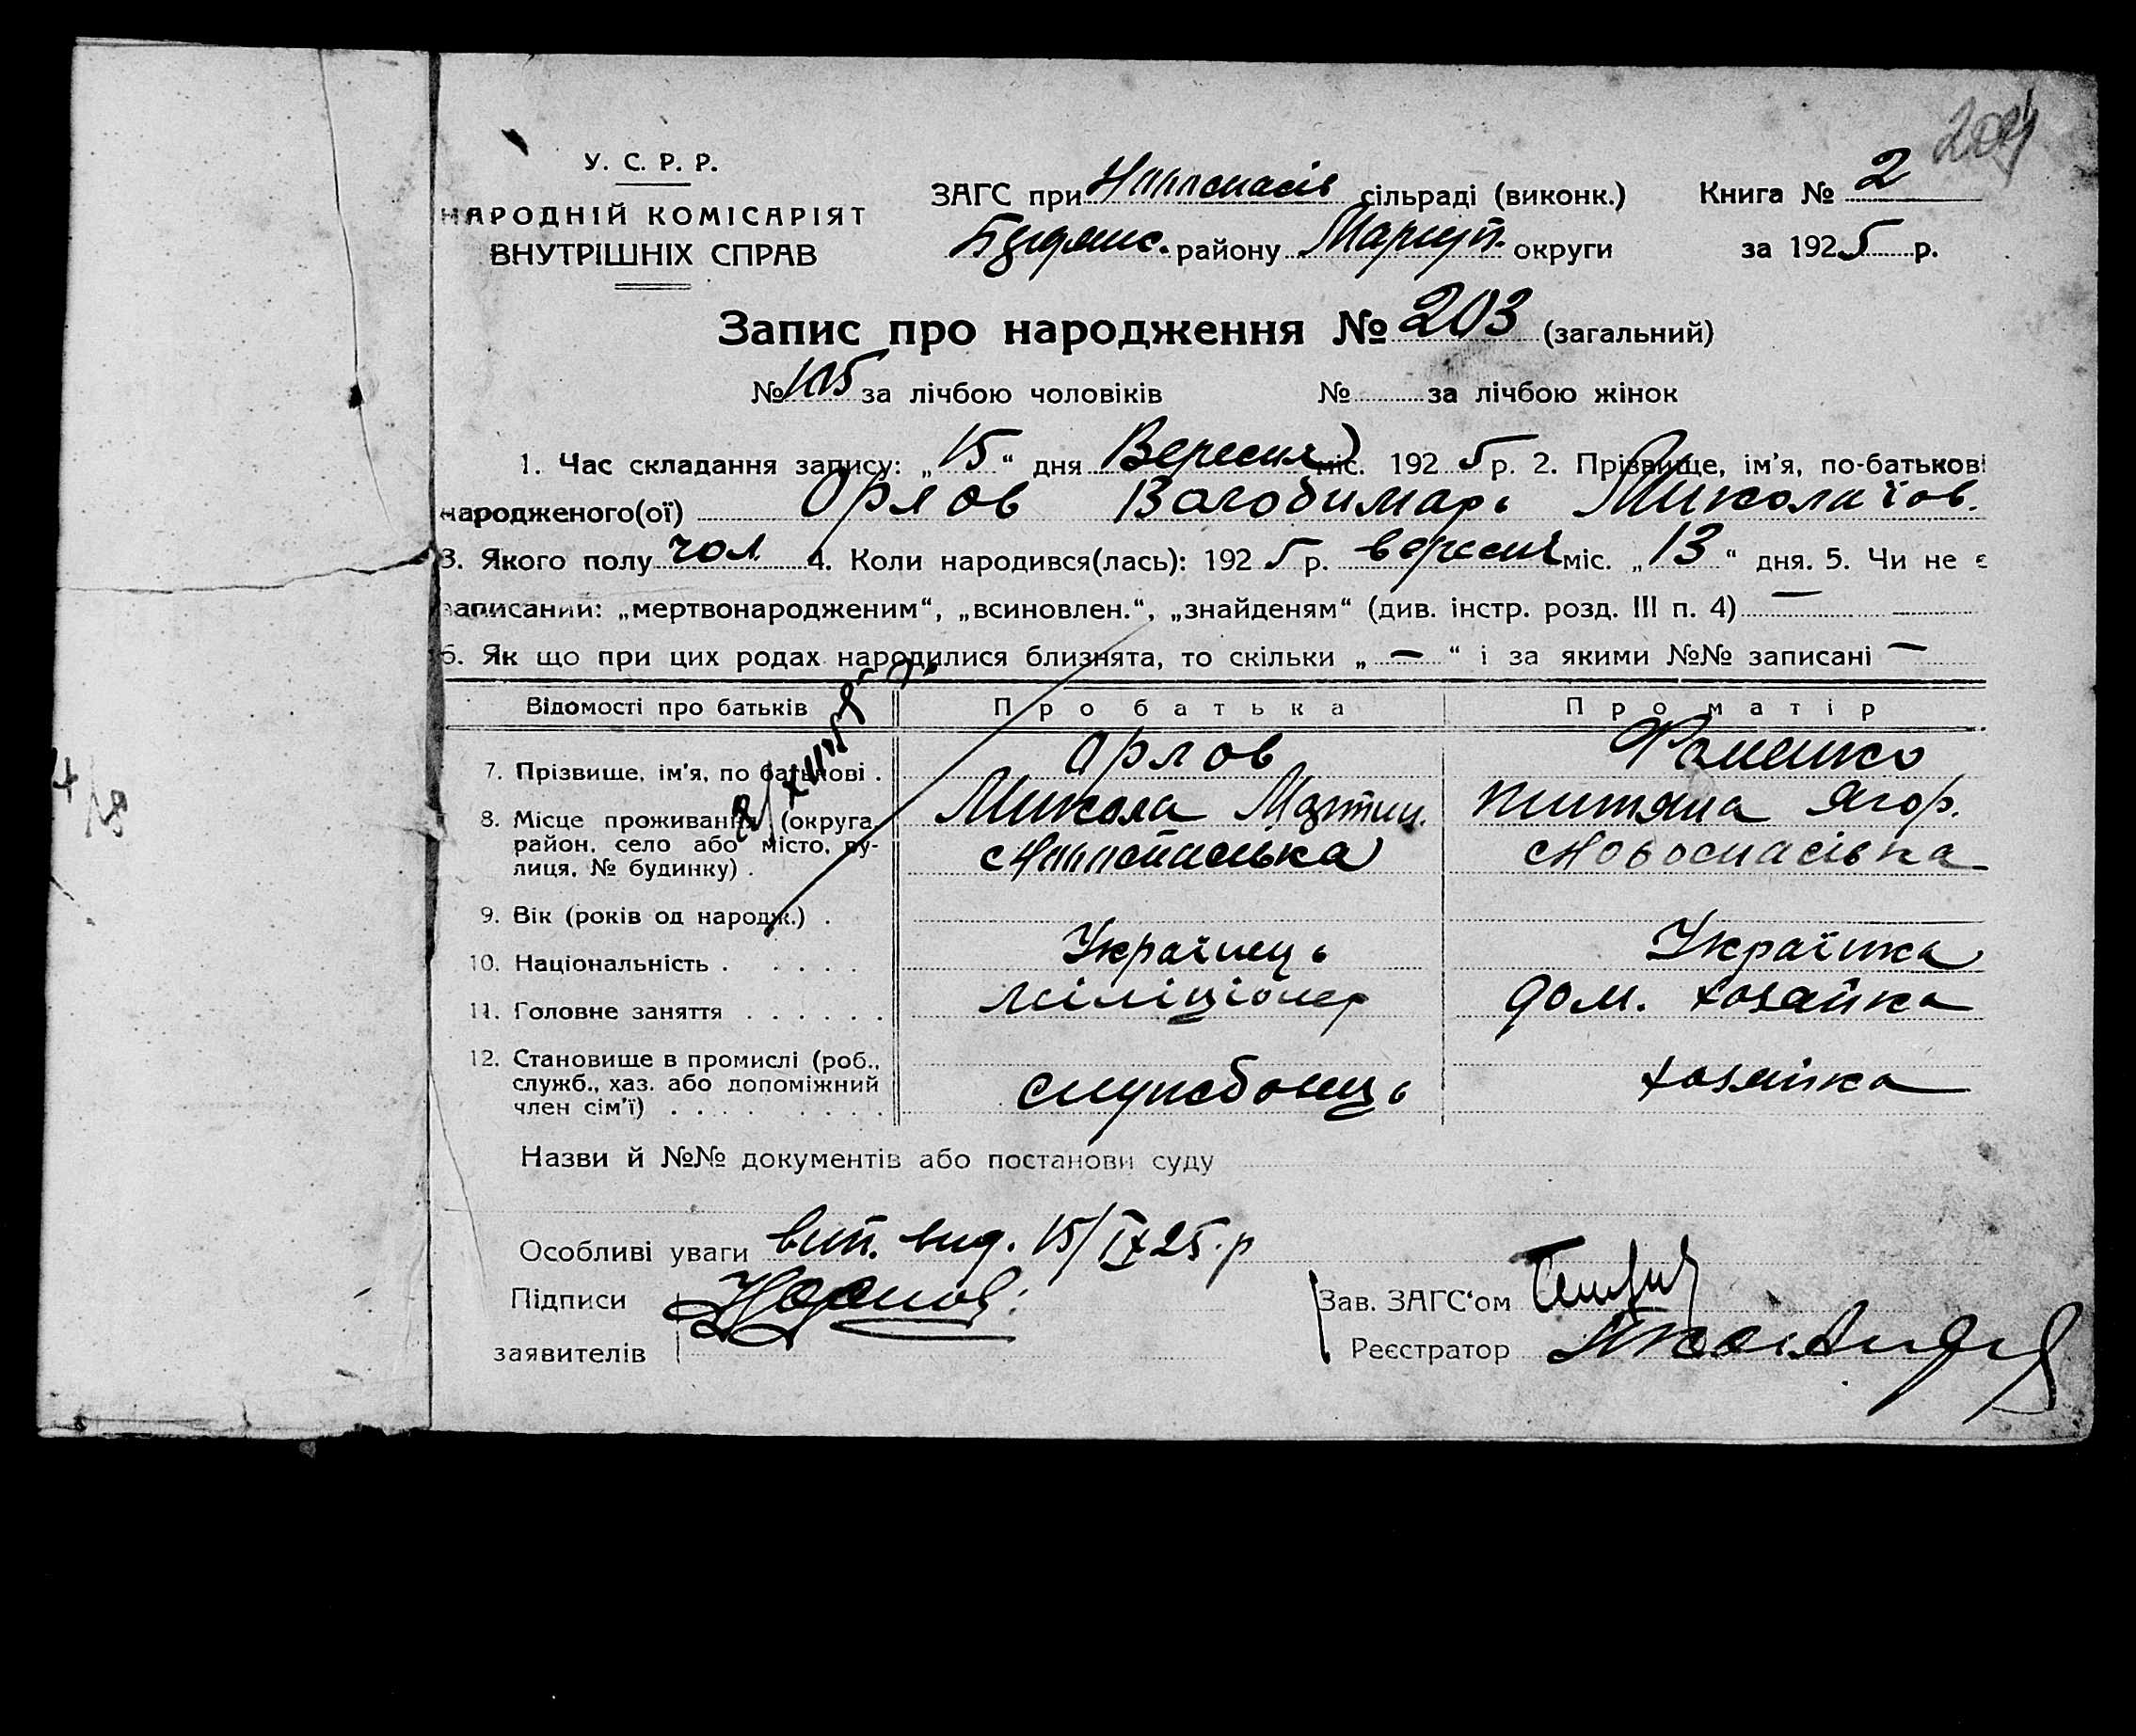 204
У. С. Р. Р.
НАРОДНІЙ КОМІСАРІЯТ
ВНУТРІШНІХ СПРАВ
ЗАГС при Н спасів сільраді (виконк.) Книга № 2
Бердянс. району Маріуп. округи за 1925 р.
Запис про народження № 203 (загальний)
№ 105 за лічбою чоловіків № за лічбою жінок
1. Час складання запису: „15“ дня Вересня міс. 1925 р. 2. Прізвище, ім'я, по-батькові
народженого(ої) Орлов Володимарь Миколаїов.
3. Якого полу чол 4. Коли народився(лась): 1925 р. вересня міс. „13“ дня. 5. Чи не є
записании: „мертвонародженим“, „всиновлен.“, „знайденям“ (див. інстр. розд. III п. 4) —
6. Як що при цих родах народилися близнята, то скільки „—“ і за якими №№ записані —
Відомості про батьків Про батька Про матір
7. Прізвище, ім'я, по батькові . Орлов Фоменко
8. Місце проживання (округа, Микола Мартин. Титяна Ягор.
район, село або місто, ву-
лиця, № будинку) . с Новоспасівка
9. Вік (років од народж.) .
10. Національність . Українець Українка
11. Головне заняття . міліціонер дом. хозайка
12. Становище в промислі (роб.,
служб., хаз. або допоміжний
член сім'ї) . службовець хозайка
Назви й №№ документів або постанови суду
Особливі уваги вип. вид. 15/IX 25 р
Підписи
заявителів
Зав. ЗАГС'ом
Реєстратор